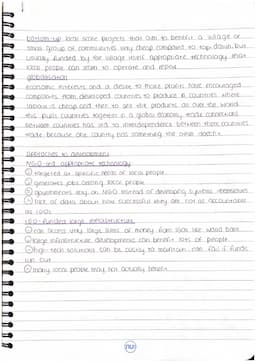 bottom-up: local scale projects that aim to benefit a village or
small group of communities very cheap compared to top down but
usually funded by the village level appropriate technology that
local people can learn to operate and repair
globalisation
economic interests and a desire to make profits have encouraged
companies from developed countries to produce in countries where
labour is cheap and then to sell the products all over the world
this pulls countries together in a global economy trade connections
between countries has led to interdependence between these countries
trade because one country has something the other doesn't
approaches to development
NGO-led appropriate technology
targeted at specific needs of local people
generates jobs among local people
governments rely on NGO instead of developing systems themselves
lack of data about how successful they are, not as accountable
as IGOs
IGO-funded large infrastructure
can access very large loans of money from IGOs like world bank
large infrastructure developments can benefit lots of people
high-tech solutions can be costly to maintain, can fail if funds
run out
many local people may not actually benefit
nu